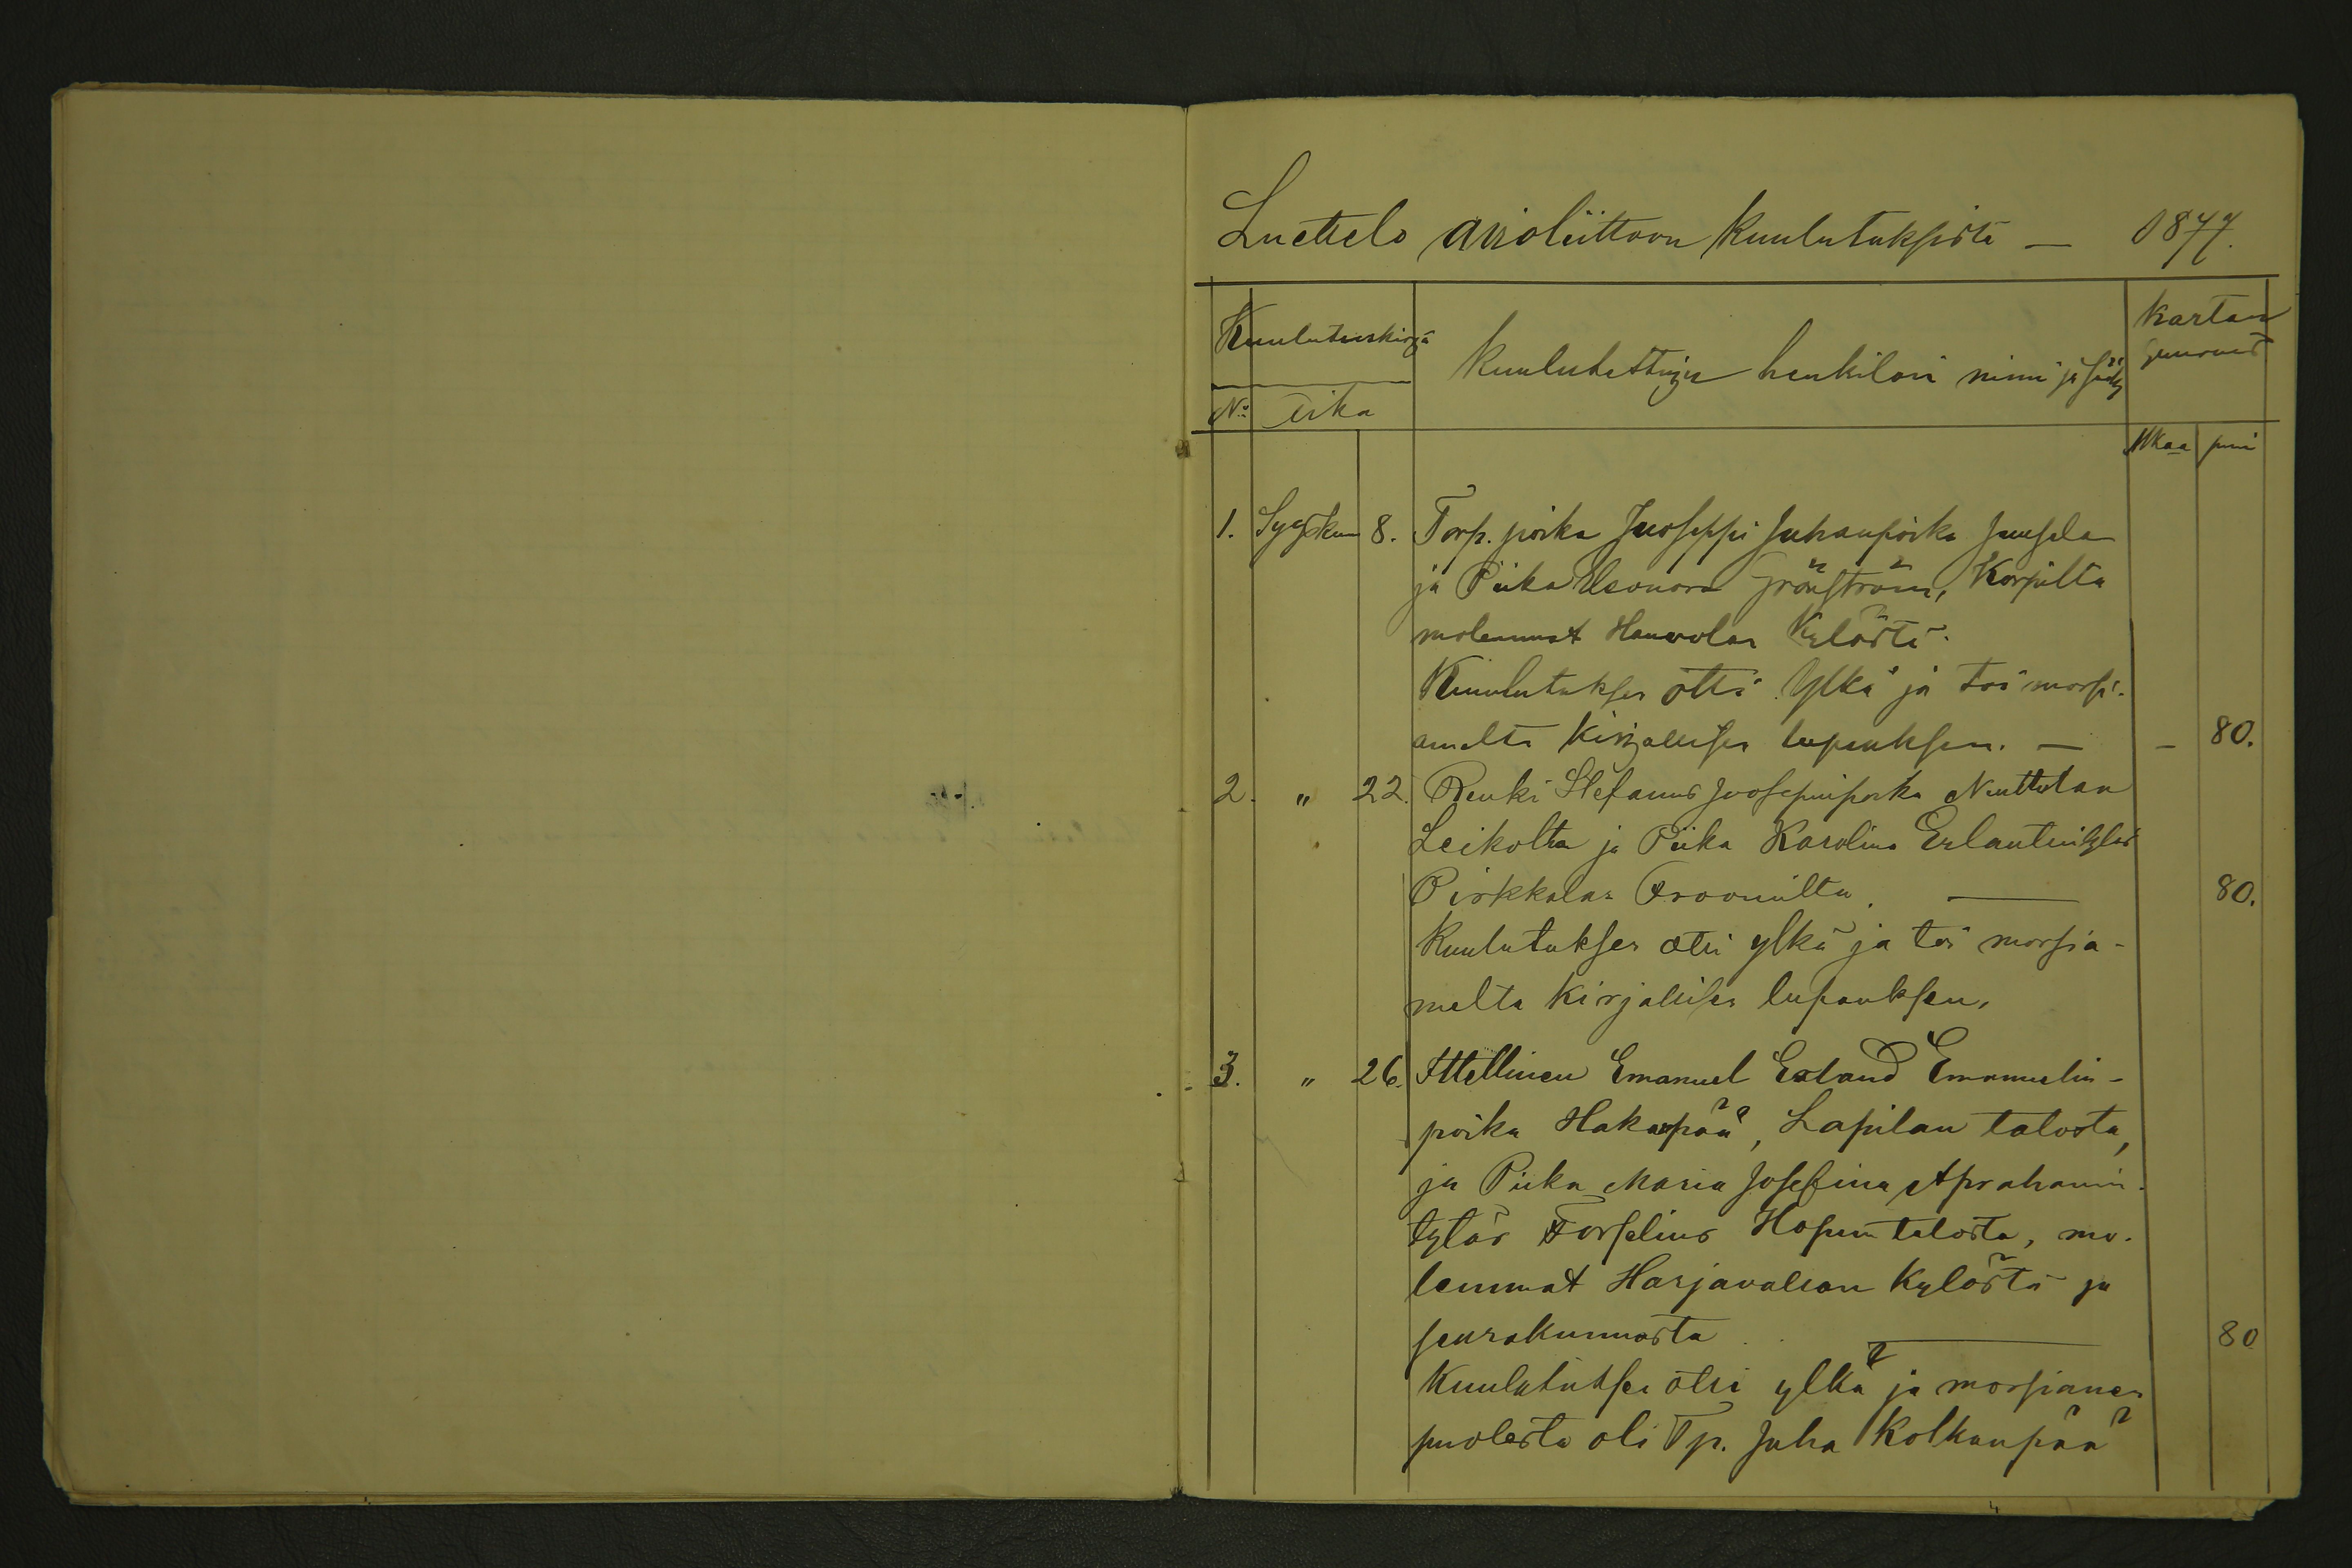 Luettelo avioliittoon kuulutuksista — 1877.
Kuulutuskirja
No: Aika
Kuulutettujen henkilöin nimi ja sääty
kartan
Mkaa pnii
1. Syyskuu 8. Torp. poika Juoseppi Juhanpoika
ja Piika Eleonora Grönström, Korpilta
molemmat Kylästä.
Kuulutuksen otti Ylkä ja toi morsi-
amelta kirjallisen lupauksen. — – 80.
2. " 22. Renki Stefanus Joosepinpoika Nuttulan
Leikolta ja Piika Karolina Erlantintytär
Pirkkalan Froomilta. — 80.
Kuulutuksen otti ylkä ja toi morsia-
melta kirjallisen lupauksen.
3. " 26. Ittellinen Emanuel Erland Emanuelin-
poika Hakanpää, Lapilan talosta,
ja Piika Maria Josefina Aprahamin-
tytär Forselius Hopun talosta, mo-
lemmat Harjavallan Kylästä ja
seurakunnasta — 80
Kuulutuksen otti ylkä ja morsiamen
puolesta oli Tp. Juha Kolkanpää